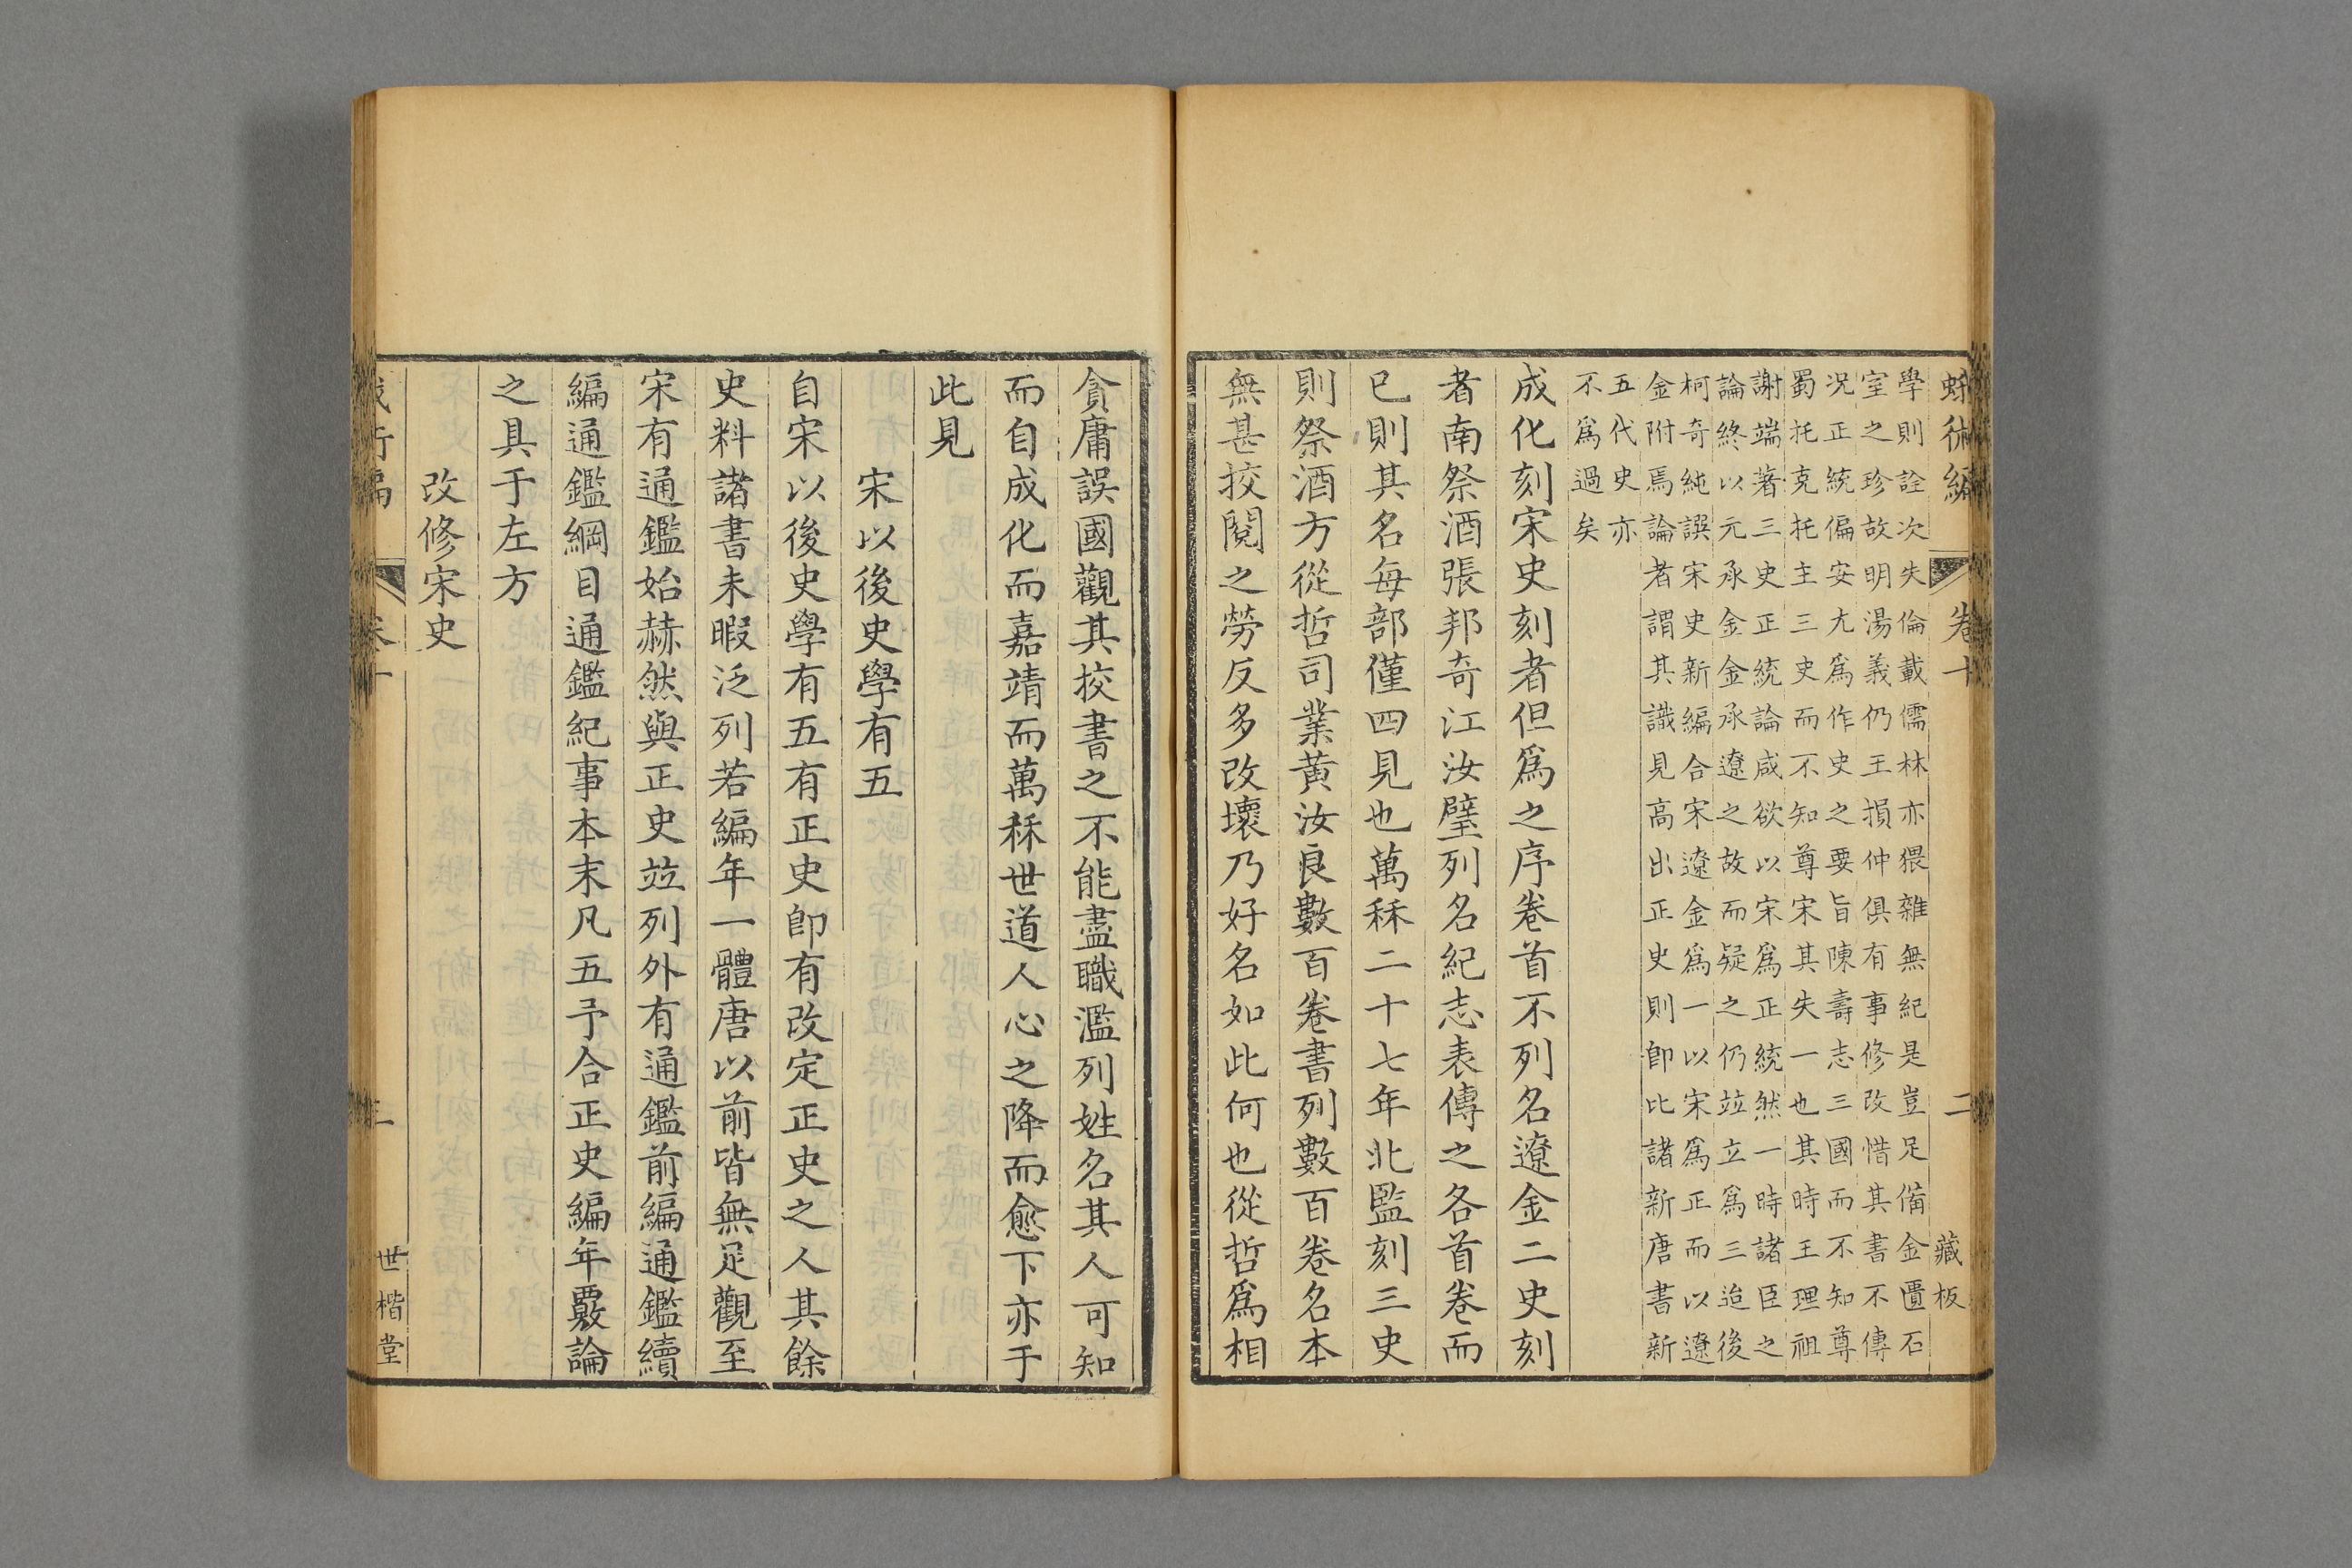 蛾術編 卷十 二 藏板
學則詮次失倫載儒林亦猥雜無紀是豈足備金匱石
室之珍故明湯義仍王損仲俱有事修改惜其書不傳
況正統偏安尤爲作史之要旨陳壽志三國而不知尊
蜀托克托主三史而不知尊宋其失一也其時王理祖
謝端著三史正統論咸欲以宋爲正統然一時諸臣之
論終以元承金金承遼之故而疑之仍竝立爲三迨後
柯奇純譔宋史新編合宋遼金爲一以宋爲正而以遼
金附焉論者謂其識見高出正史則卽比諸新唐書新
五代史亦
不爲過矣
成化刻宋史刻者但爲之序卷首不列名遼金二史刻
者南祭酒張邦奇江汝璧列名紀志表傳之各首卷而
已則其名每部僅四見也萬秝二十七年北監刻三史
則祭酒方從哲司業黄汝良數百卷書列數百卷名本
無甚挍閱之勞反多改壞乃好名如此何也從哲爲相
貪庸誤國觀其挍書之不能盡職濫列姓名其人可知
而自成化而嘉靖而萬秝世道人心之降而愈下亦于
此見
宋以後史學有五
自宋以後史學有五有正史卽有改定正史之人其餘
史料諸書未暇泛列若編年一體唐以前皆無足觀至
宋有通鑑始赫然與正史竝列外有通鑑前編通鑑續
編通鑑綱目通鑑紀事本末凡五予合正史編年覈論
之具于左方
改修宋史
世楷堂